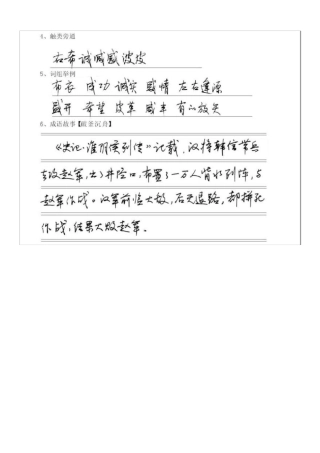 4、触类旁通
右希诚咸感波皮
5、词组举例
布衣 成功 诚实 感情 左右逢源
盛开 希望 皮革 咸丰 有的放矢
6、成语故事【破釜沉舟】
《史记·淮阴侯列传》记载，汉将韩信带兵
去攻赵军，出了井陉口，布置了一万人背水列阵，与
赵军作战。汉军前临大敌，后无退路，都拼死
作战，结果大败赵军。